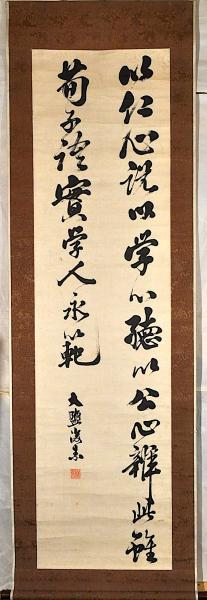 以仁心説以学心聴以公心辨此雖
荀子語實学人永以範
大塩後素